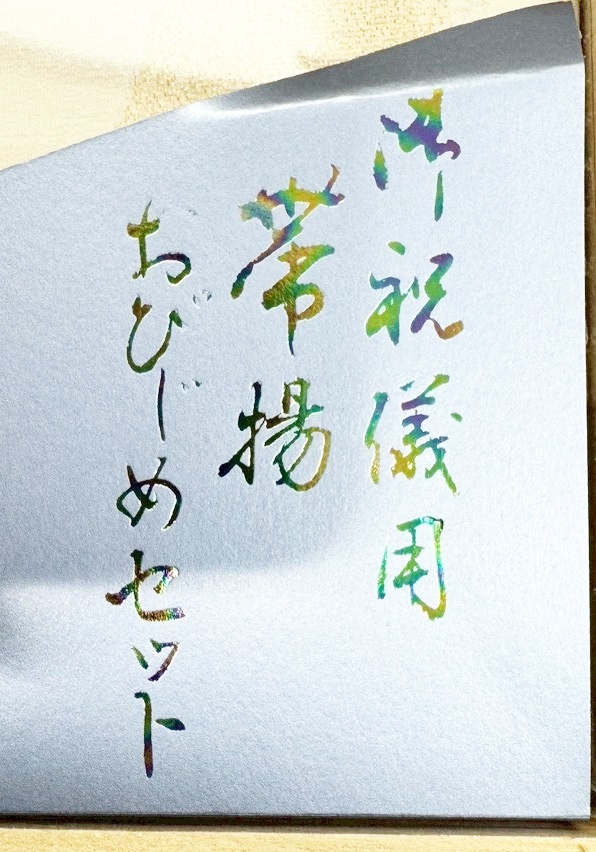 御祝儀用
帯揚
おびじめセット